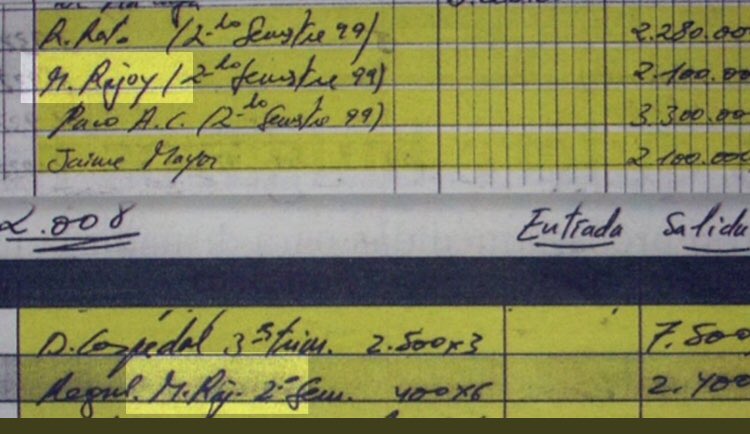 R. Rato (2-do Semestre 99) 2.280.00
M. Rajoy (2-do Semestre 99) 2.100.00
Paco A.C. (2-do Semestre 99) 3.300.00
Jaime Mayor 2.100.000
2.008 Entrada Salida
D. Cospedal 3-s trim. 2.500x3 7.500
M. Raj. 2-º Sem. 400x6 2.400